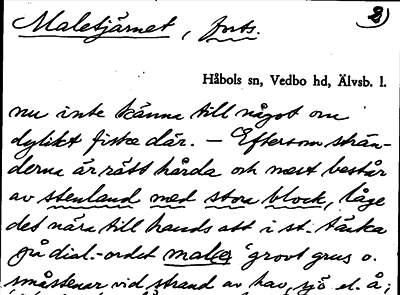 Maletjärnet, forts.
2)
Håbols sn, Vedbo hd, Älvsb. l.
nu inte känna till något om
dylikt fiske där. – Eftersom strän-
derna är rätt hårda och mest består
av stenland med stora block, låge
det nära till hands att i st. tänka
på dial.-ordet males 'grovt grus o.
småstenar vid strand av hav, sjö el. å;